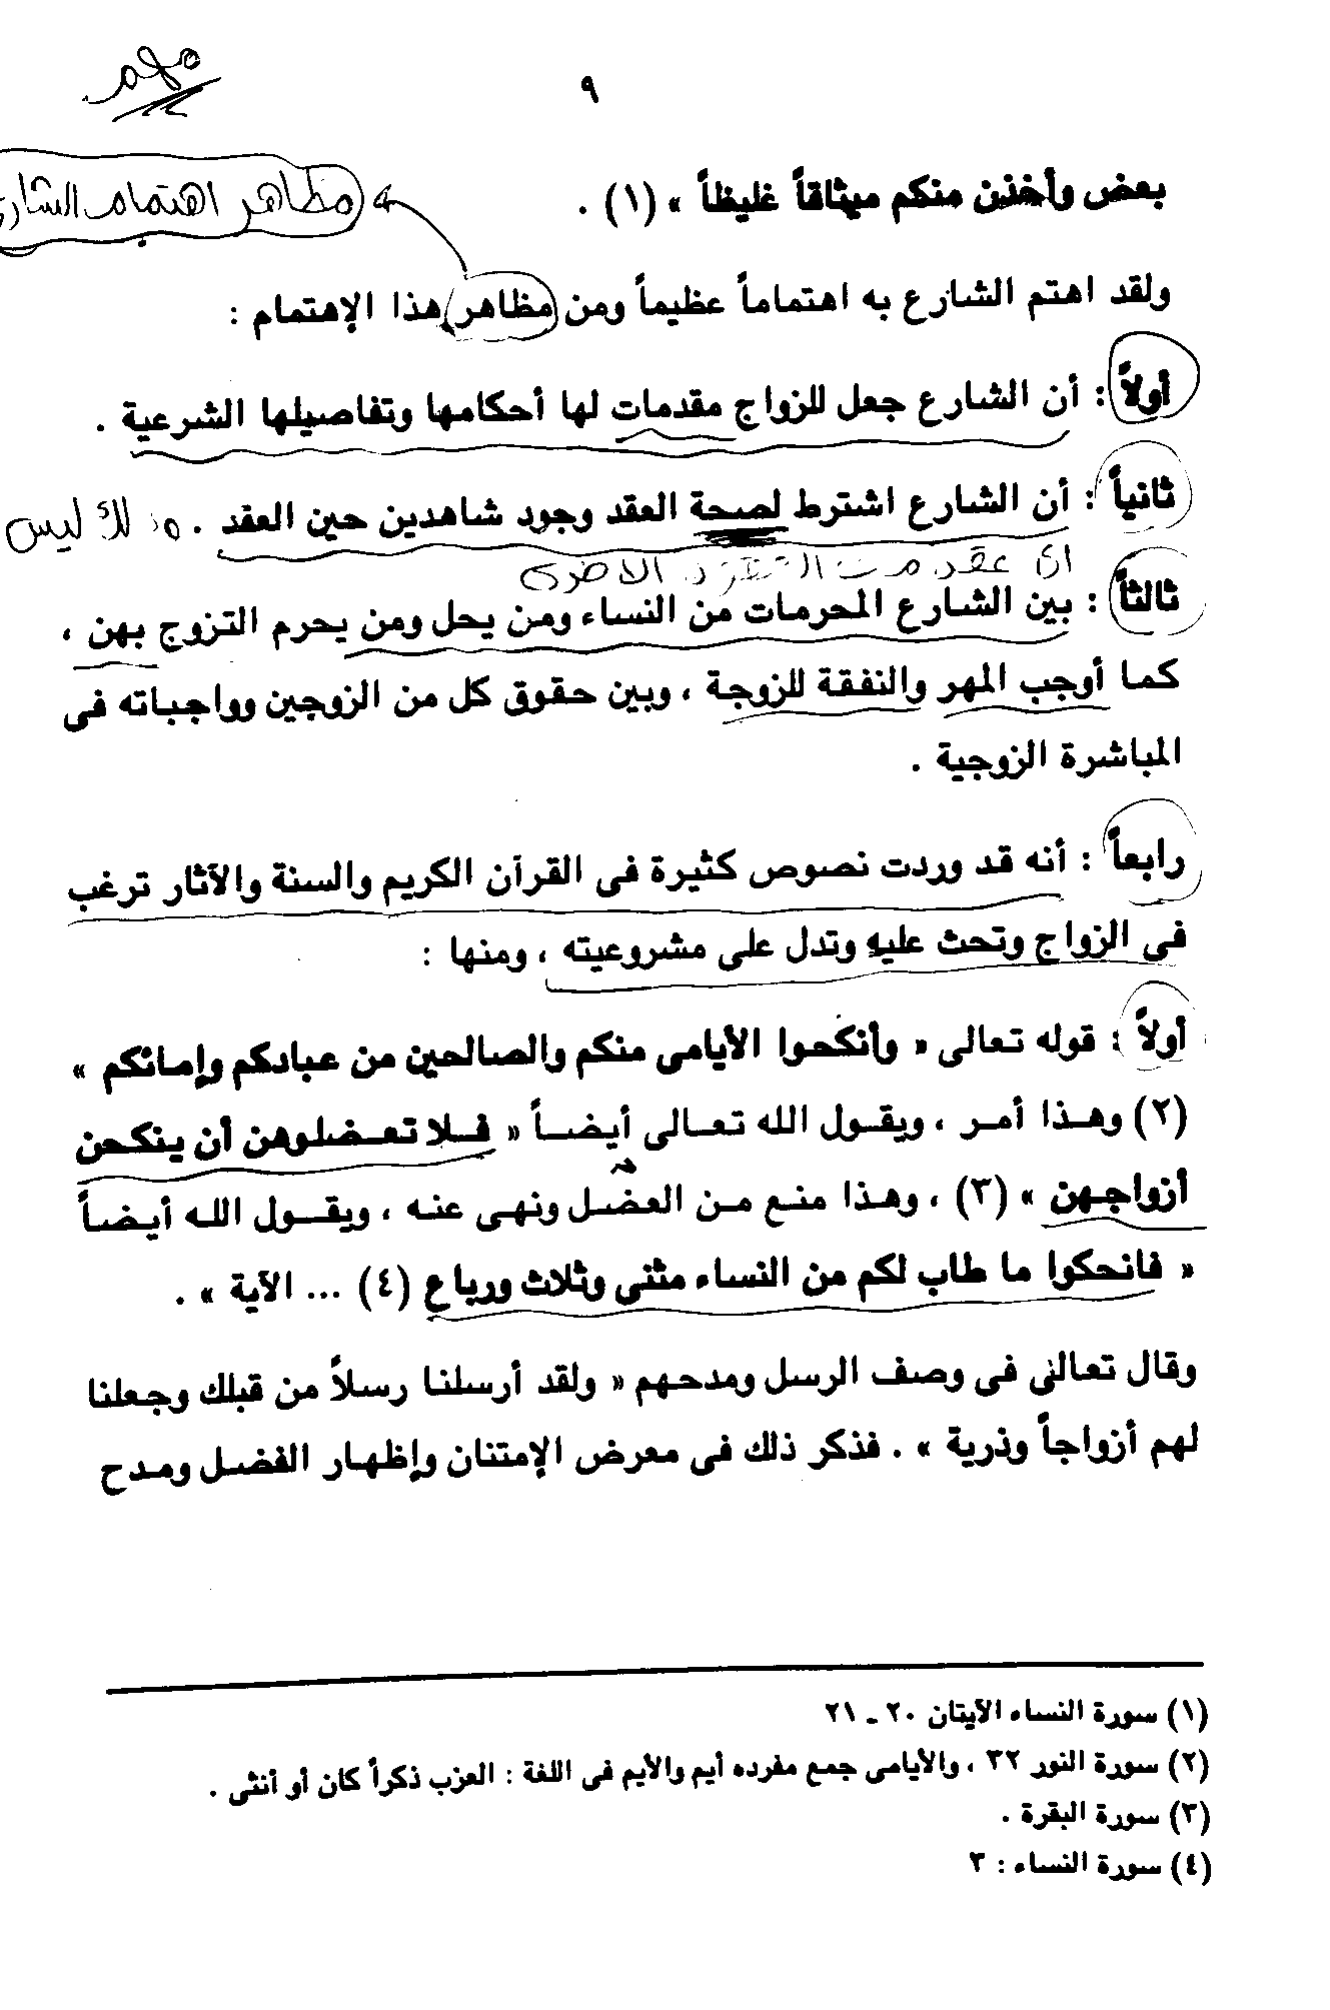 مهم
٩
بعض وأخذن منكم ميثاقاً غليظاً » (١) .
مظاهر اهتمام الشارع
ولقد اهتم الشارع به اهتماماً عظيماً ومن مظاهر هذا الإهتمام :
أولاً : أن الشارع جعل للزواج مقدمات لها أحكامها وتفاصيلها الشرعية .
ثانياً : أن الشارع اشترط لصحة العقد وجود شاهدين حين العقد . وذلك ليس
عقد من الاخرى
ثالثاً : بين الشارع المحرمات من النساء ومن يحل ومن يحرم التزوج بهن ،
كما أوجب المهر والنفقة للزوجة ، وبين حقوق كل من الزوجين وواجباته فى
المباشرة الزوجية .
رابعاً : أنه قد وردت نصوص كثيرة فى القرآن الكريم والسنة والآثار ترغب
فى الزواج وتحث عليه وتدل على مشروعيته ، ومنها :
أولاً : قوله تعالى « وأنكحوا الأيامى منكم والصالحين من عبادكم وإمائكم »
(٢) وهذا أمر ، ويقول الله تعالى أيضاً « فلا تعضلوهن أن ينكحن
أزواجهن » (٣) ، وهذا منع من العضل ونهى عنه ، ويقول الله أيضاً
« فانحكوا ما طاب لكم من النساء مثنى وثلاث ورباع (٤) ... الآية » .
وقال تعالى فى وصف الرسل ومدحهم « ولقد أرسلنا رسلاً من قبلك وجعلنا
لهم أزواجاً وذرية » . فذكر ذلك فى معرض الإمتنان وإظهار الفضل ومدح
(١) سورة النساء الآيتان ٢٠ ـ ٢١
(٢) سورة النور ٣٢ ، والأيامى جمع مفرده أيم والأيم فى اللغة : العزب ذكراً كان أو أنثى .
(٣) سورة البقرة .
(٤) سورة النساء : ٣